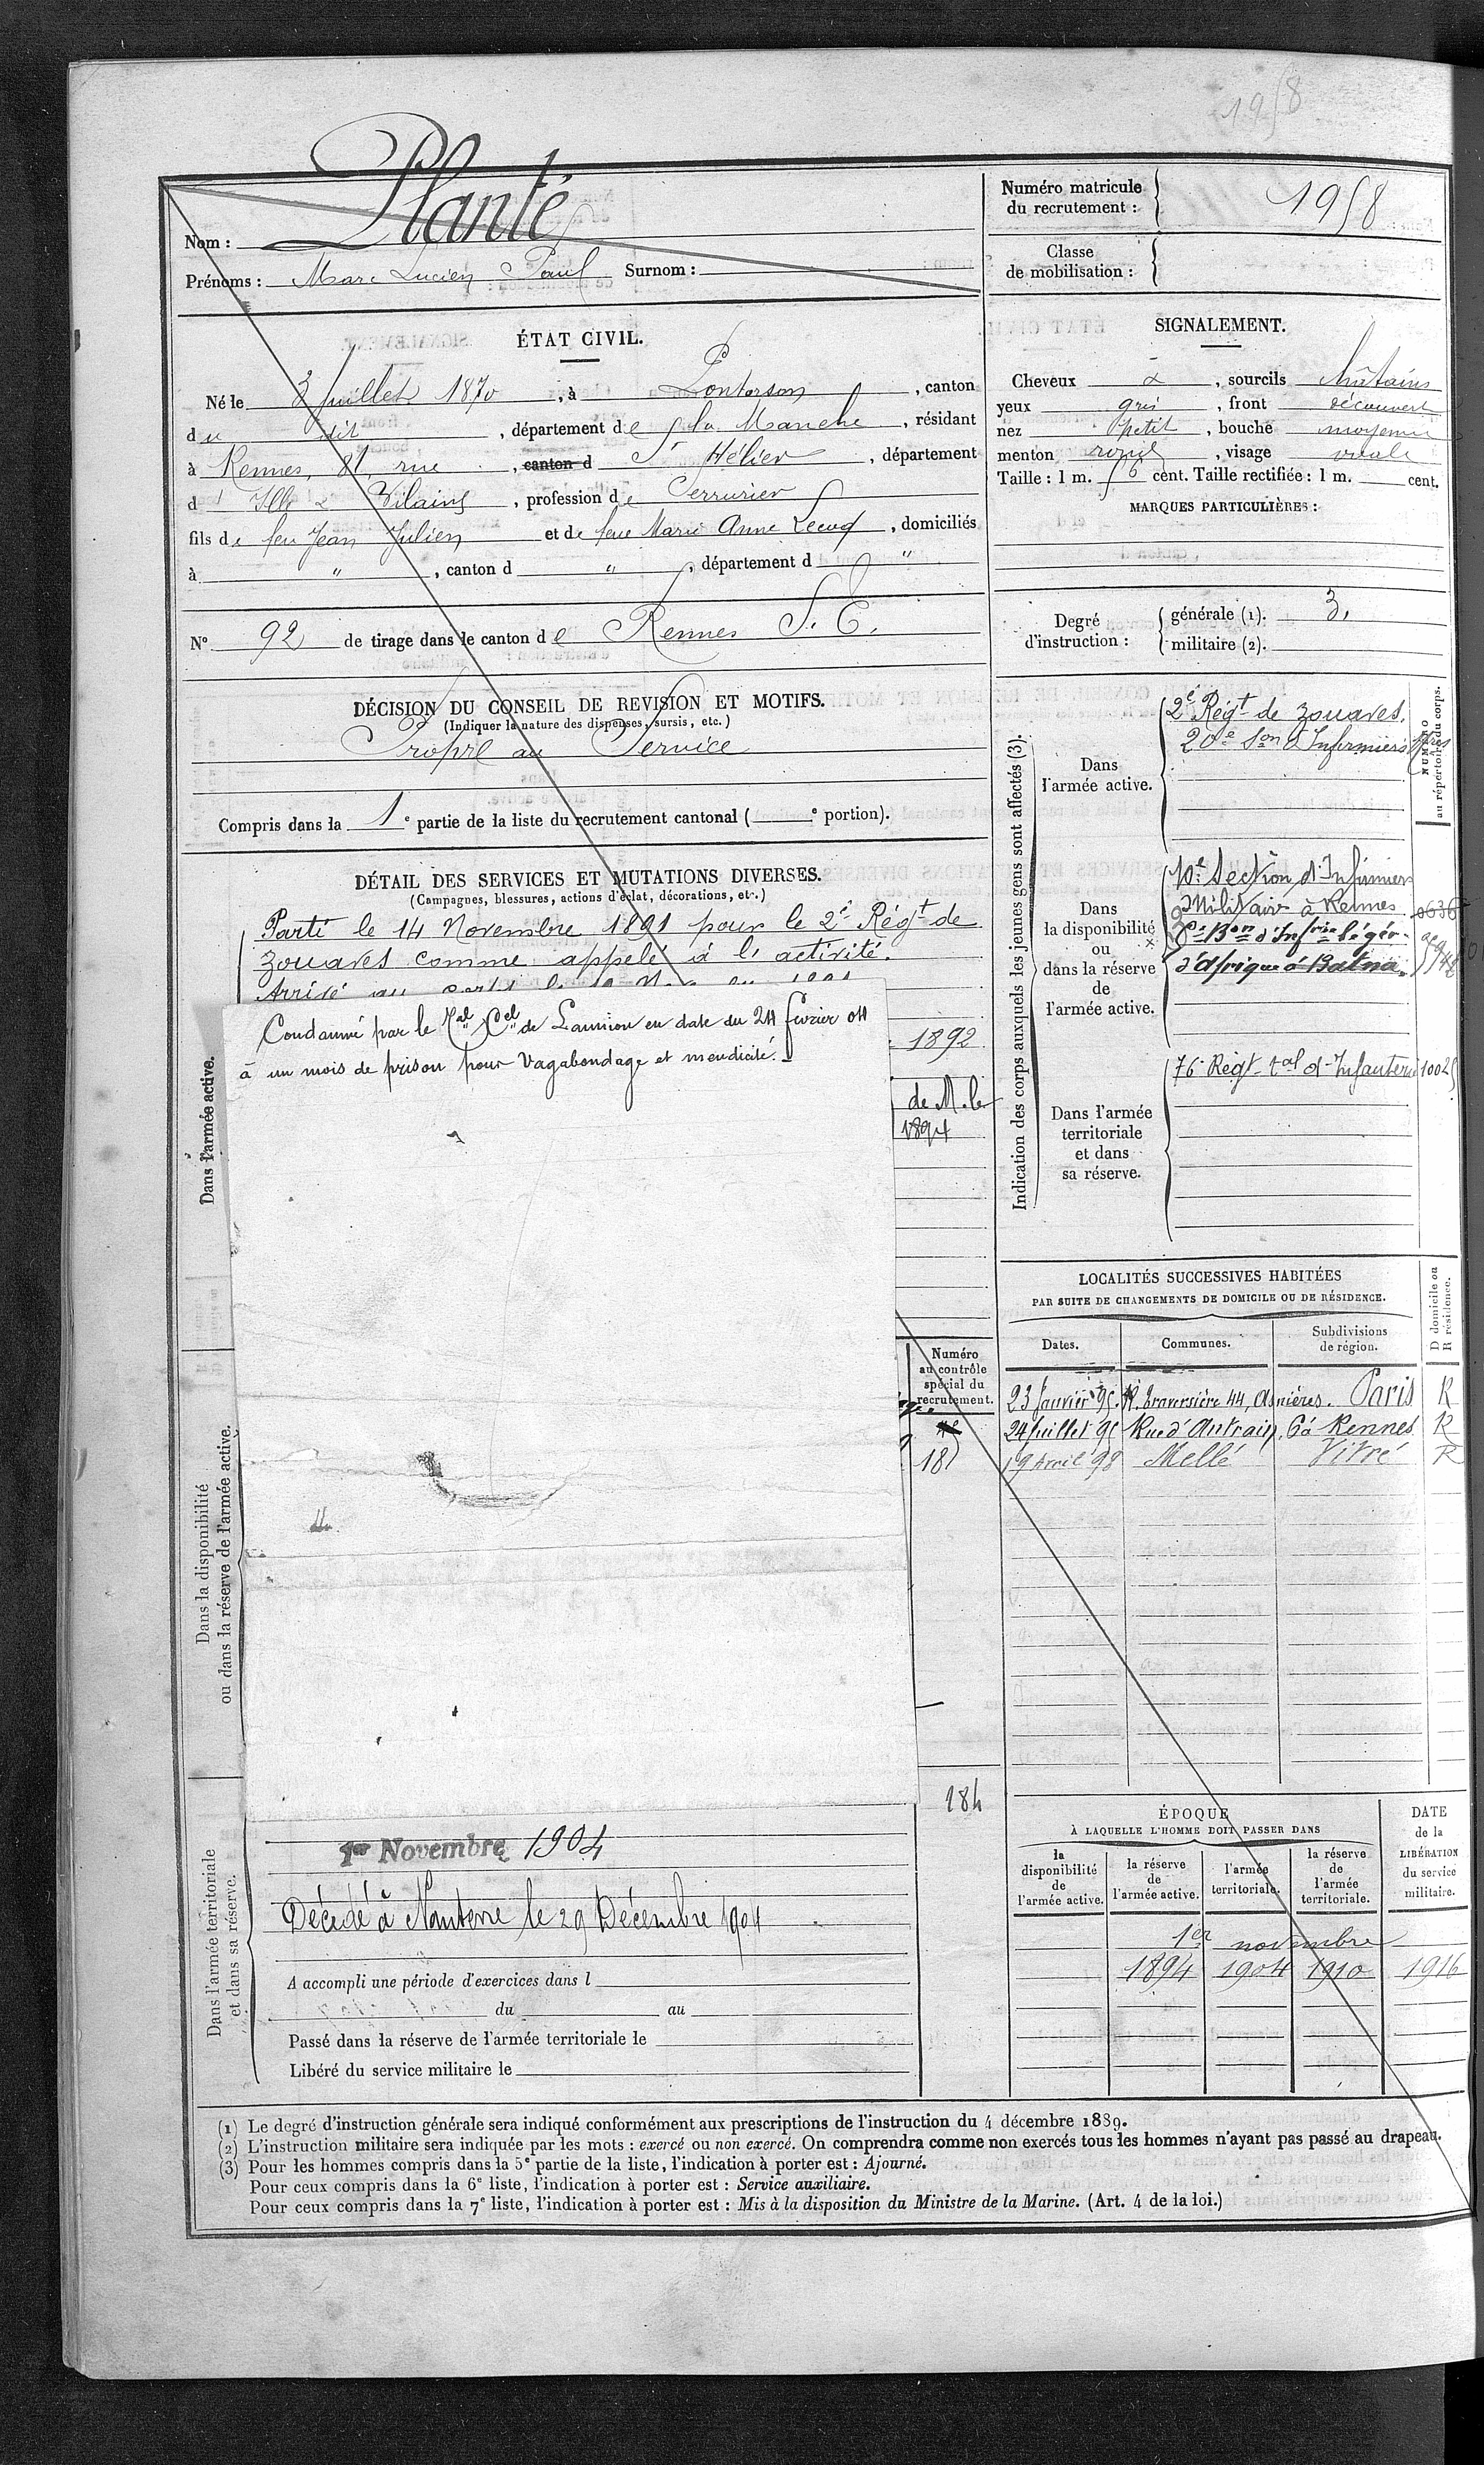 1958
Nom : Planté
Prénoms : Marc Lucien Paul Surnom :
Numéro matricule du recrutement : 1958
Classe de mobilisation :
ÉTAT CIVIL.
Né le 3 juillet 1870, à Pontorson, canton
du dit, département de la Manche, résidant
à Rennes, 81, rue, canton d St Hélier, département
d'Ille & Vilaine, profession de Serrurier
fils de feu Jean Julien et de feue Marie Anne Lecoq, domiciliés
à ", canton d ", département d "
SIGNALEMENT.
Cheveux &, sourcils châtains
yeux gris, front découvert
nez petit, bouche moyenne
menton rond, visage ovale
Taille : 1 m. cent. Taille rectifiée : 1 m. cent.
MARQUES PARTICULIÈRES :
N° 92 de tirage dans le canton de Rennes S. E.
Degré d'instruction : générale (1). 3.
militaire (2).
DÉCISION DU CONSEIL DE REVISION ET MOTIFS.
(Indiquer la nature des dispenses, sursis, etc.)
Propre au Service
Compris dans la 1e partie de la liste du recrutement cantonal ( e portion).
DÉTAIL DES SERVICES ET MUTATIONS DIVERSES.
(Campagnes, blessures, actions d'éclat, décorations, etc.)
Dans l'armée active.
Parti le 14 Novembre 1891 pour le 2e Régt de
zouaves comme appelé à l'activité.
Arrivé au corps le
Condamné par le Tal Cel de Lannion en date du 24 février 04
à un mois de prison pour vagabondage et mendicité.
1892
de M. le
1894
Indication des corps auxquels les jeunes gens sont affectés (3).
NUMÉRO
au répertoire du corps.
Dans l'armée active.
2e Régt de zouaves.
20e Son d'Infirmiers
Dans la disponibilité ou dans la réserve de l'armée active.
10e Section d'Infirmiers
Militaires à Rennes
Bon d'Infrie légère
d'Afrique à Batna.
Dans l'armée territoriale et dans sa réserve.
76e Régt tal d'Infanterie 10025
LOCALITÉS SUCCESSIVES HABITÉES
PAR SUITE DE CHANGEMENTS DE DOMICILE OU DE RÉSIDENCE.
Dates. Communes. Subdivisions de région. D domicile ou R résidence.
23 Janvier 95. R. Traversière 44, Asnières. Paris R
24 Juillet 95 Rue d'Antrain, 6 à Rennes R
19 Avril 98 Mellé Vitré R
Numéro au contrôle spécial du recrutement.
187
Dans la disponibilité
ou dans la réserve de l'armée active.
184
Dans l'armée territoriale
et dans sa réserve.
1er Novembre 1904
Décédé à Nanterre le 29 Décembre 1904
A accompli une période d'exercices dans l
du au
Passé dans la réserve de l'armée territoriale le
Libéré du service militaire le
ÉPOQUE
À LAQUELLE L'HOMME DOIT PASSER DANS
DATE de la LIBÉRATION du service militaire.
la disponibilité de l'armée active. la réserve de l'armée active. l'armée territoriale. la réserve de l'armée territoriale.
1er novembre
1894 1904 1910 1916
(1) Le degré d'instruction générale sera indiqué conformément aux prescriptions de l'instruction du 4 décembre 1889.
(2) L'instruction militaire sera indiquée par les mots : exercé ou non exercé. On comprendra comme non exercés tous les hommes n'ayant pas passé au drapeau.
(3) Pour les hommes compris dans la 5e partie de la liste, l'indication à porter est : Ajourné.
Pour ceux compris dans la 6e liste, l'indication à porter est : Service auxiliaire.
Pour ceux compris dans la 7e liste, l'indication à porter est : Mis à la disposition du Ministre de la Marine. (Art. 4 de la loi.)